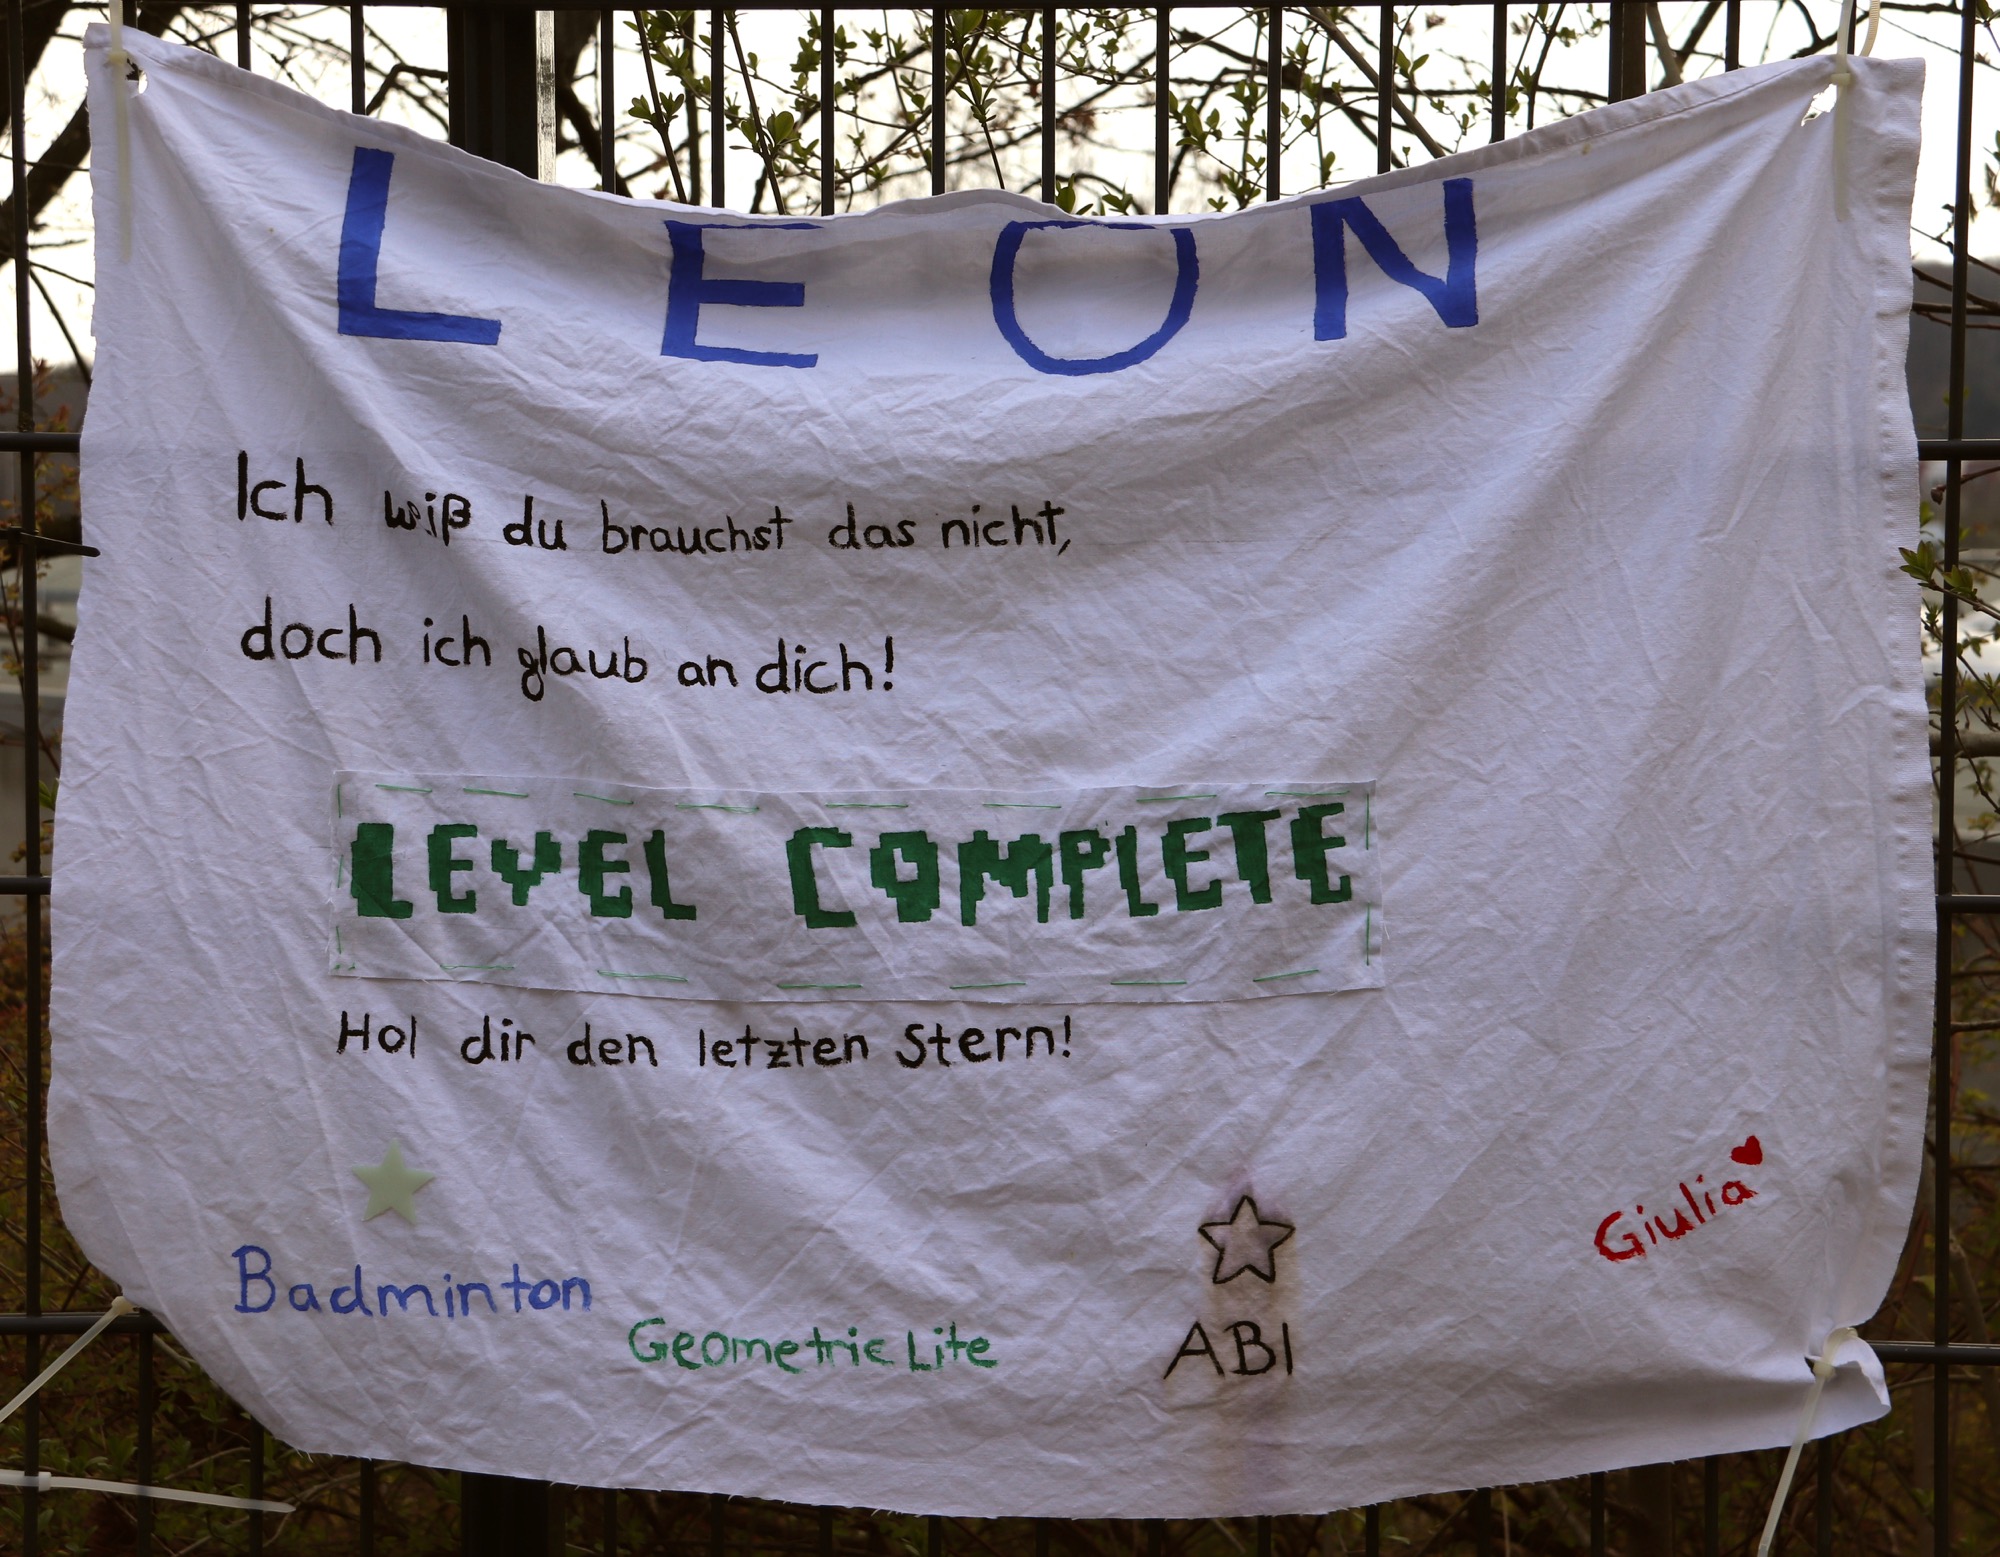 LEON
Ich wiß du brauchst das nicht,
doch ich glaub an dich!
LEVEL COMPLETE
Hol dir den letzten Stern!
Badminton
Geometric Lite
ABI
Giulia